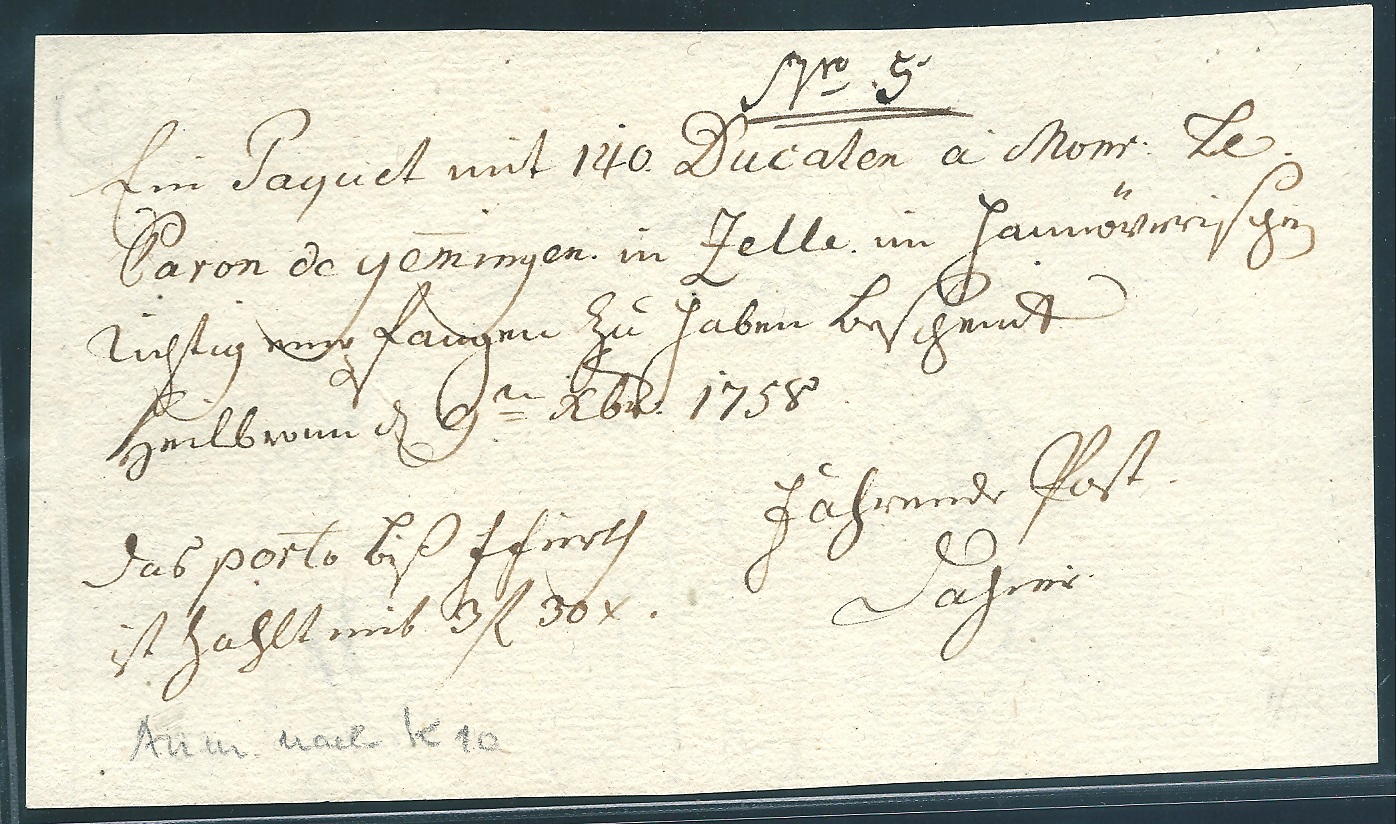 Nro. 5
Ein Paquet mit 140. Ducaten à Monr. Le
Baron de Gem̄ingen. in Zelle. im Hannövrischen
Richtig empfangen zu haben bescheint
Heilbronn d. 9n Xbr. 1758
Fahrende Post.
Dahier
das porto biß ffurth
ist zahlt mit 3 fl 30 x.